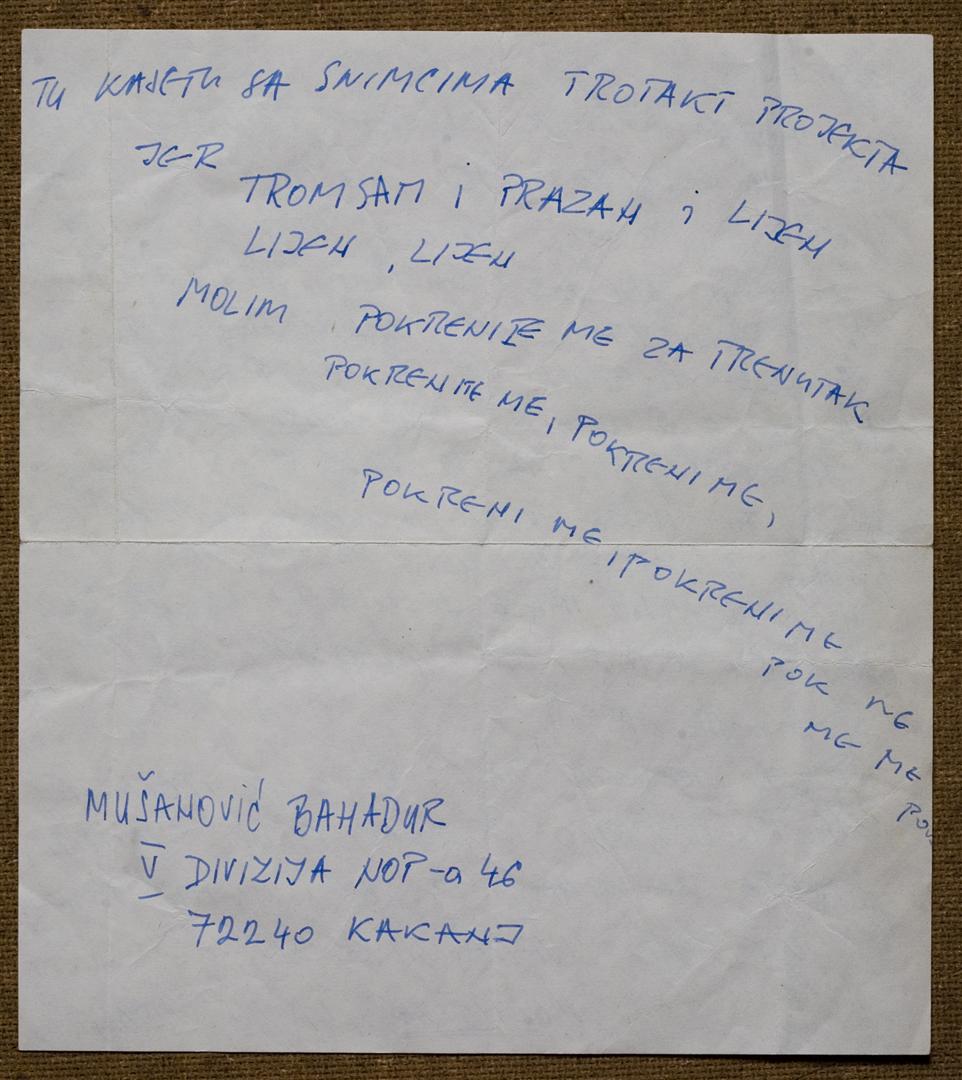 TU KASETU SA SNIMCIMA TROTAKT PROJEKTA
JER
TROM SAM I PRAZAN I LIJEN
LIJEN, LIJEN
MOLIM POKRENITE ME ZA TRENUTAK
POKRENITE ME, POKRENI ME,
POKRENI ME, POKRENI ME
POK ME
ME ME
POK
MUŠANOVIĆ BAHADUR
V DIVIZIJA NOP-a 46
72240 KAKANJ